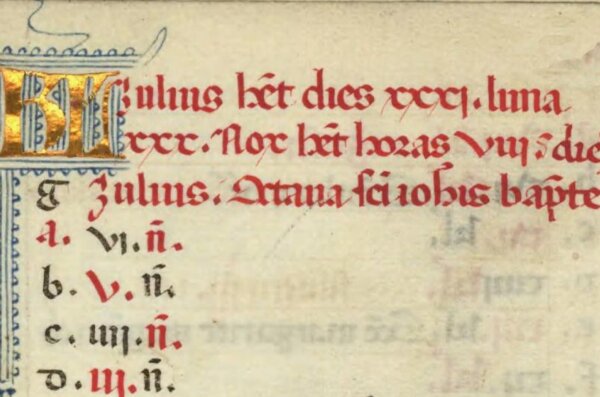 KL Julius hēt dies xxxi. luna
xxx. Nox hēt horas viii. die
g Julius. Octaua sc̄i ioh̄is bap̄te
a. vi. n̄.
b. v. n̄.
c. iiii. n̄.
d. iii. n̄.